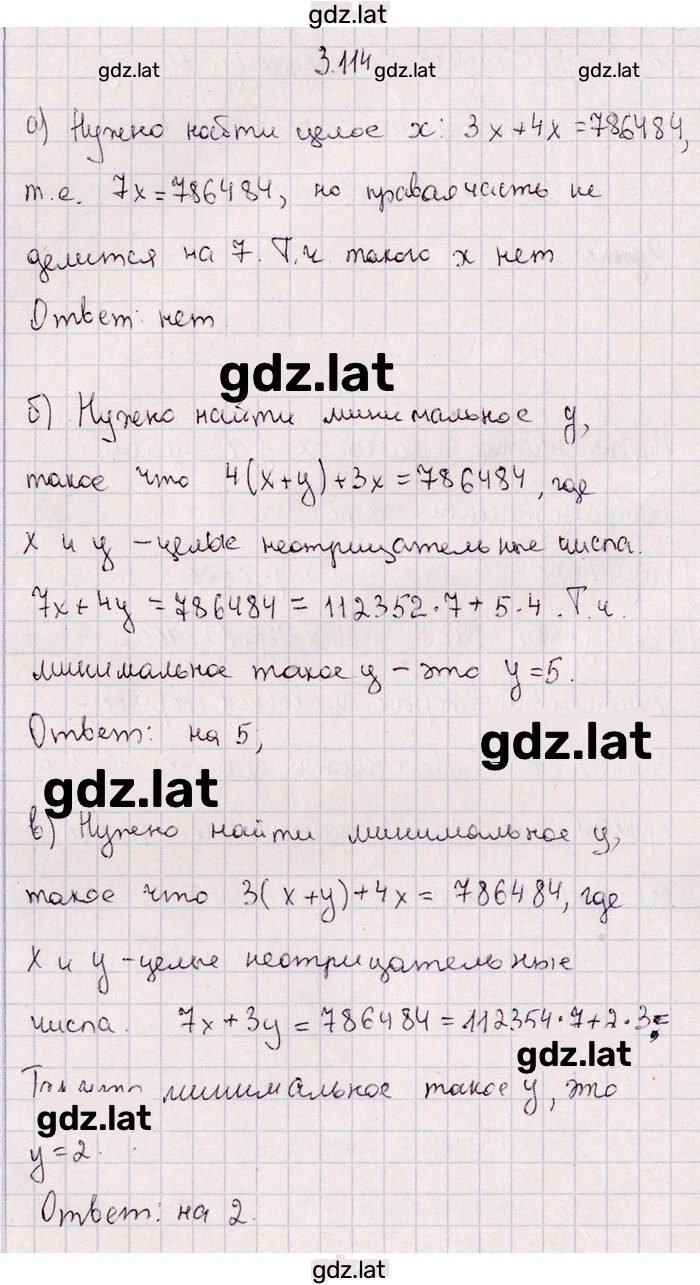 gdz.lat
3.114
gdz.lat gdz.lat gdz.lat
а) Нужно найти целое x: 3x+4x=786484,
т.е. 7x=786484, но правая часть не
делится на 7. Т.ч. такого x нет
Ответ: нет.
gdz.lat
б) Нужно найти минимальное y,
такое что 4(x+y)+3x=786484, где
x и y – целые неотрицательные числа.
7x+4y=786484=112352·7+5·4. Т.ч.
минимальное такое y – это y=5.
Ответ: на 5,
gdz.lat
gdz.lat
в) Нужно найти минимальное y,
такое что 3(x+y)+4x=786484, где
x и y – целые неотрицательные
числа. 7x+3y=786484=112354·7+2·3;
gdz.lat
минимальное такое y, это
gdz.lat
y=2.
Ответ: на 2.
gdz.lat